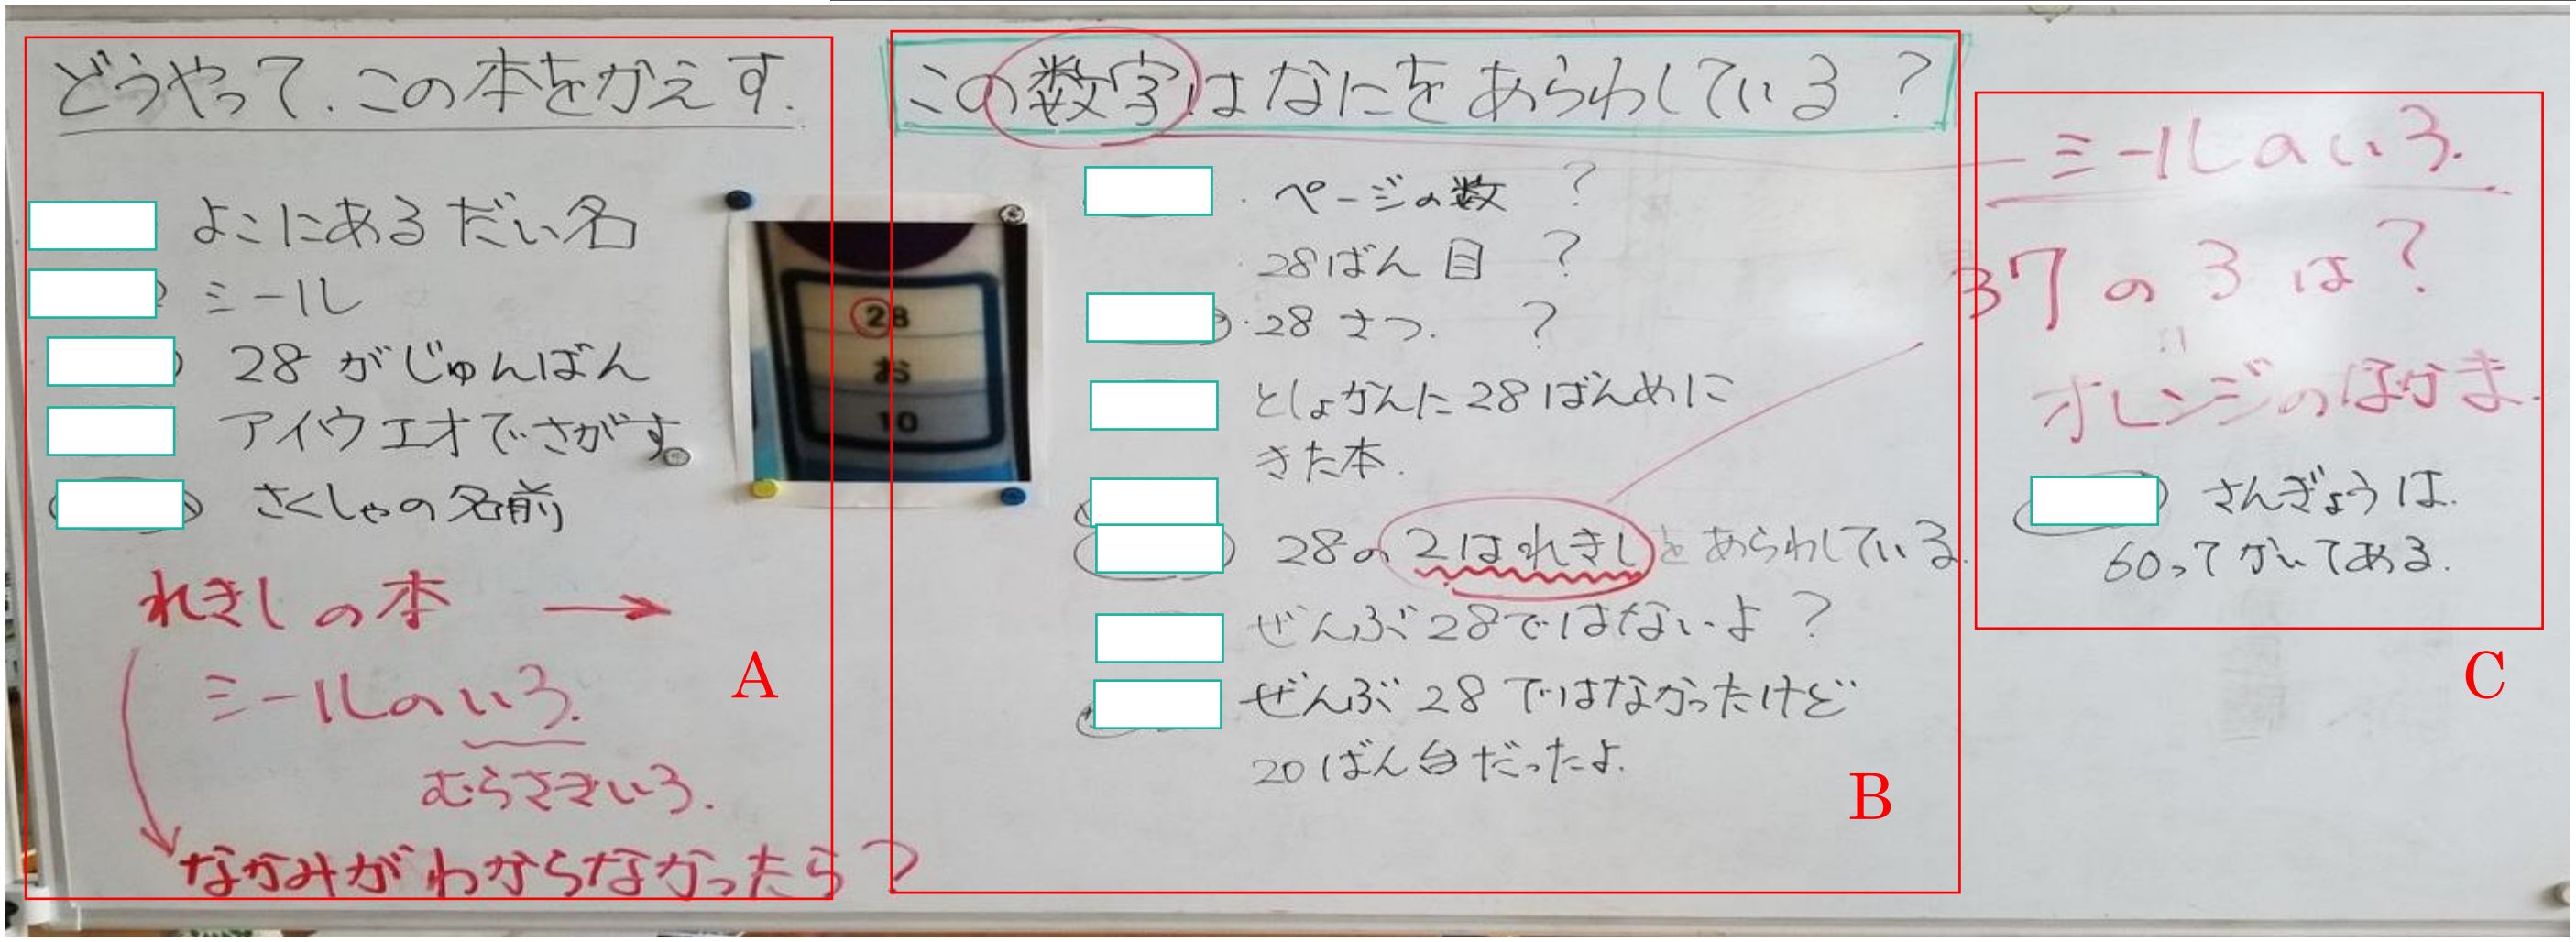 どうやって.この本をかえす.
よこにあるだい名
ミール
28がじゅんばん
アイウエオでさがす。
さくしゃの名前
れきしの本 →
ミールのいろ.
むらさきいろ.
なかみがわからなかったら?
A
28
お
10
この数字はなにをあらわしている?
・ページの数?
・28ばん目?
・28さつ.?
としょかんに28ばんめに
きた本.
28の2はれきしをあらわしている
ぜんぶ28ではないよ?
ぜんぶ28ではなかったけど
20ばん台だったよ.
B
ミールのいろ.
37の3は?
オレンジのほかま.
さんぎょうは.
60ってかいてある.
C